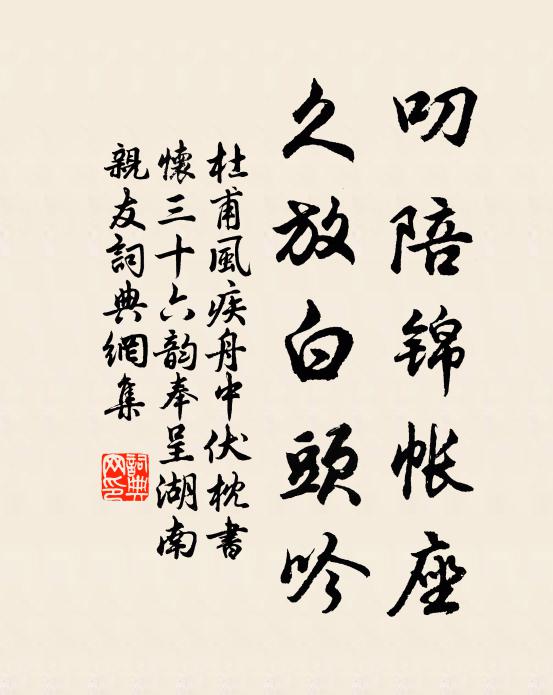 叨陪锦帐座
久放白頭吟
杜甫風疾舟中伏枕書
懷三十六韵奉呈湖南
親友詞典網集
詞典网印